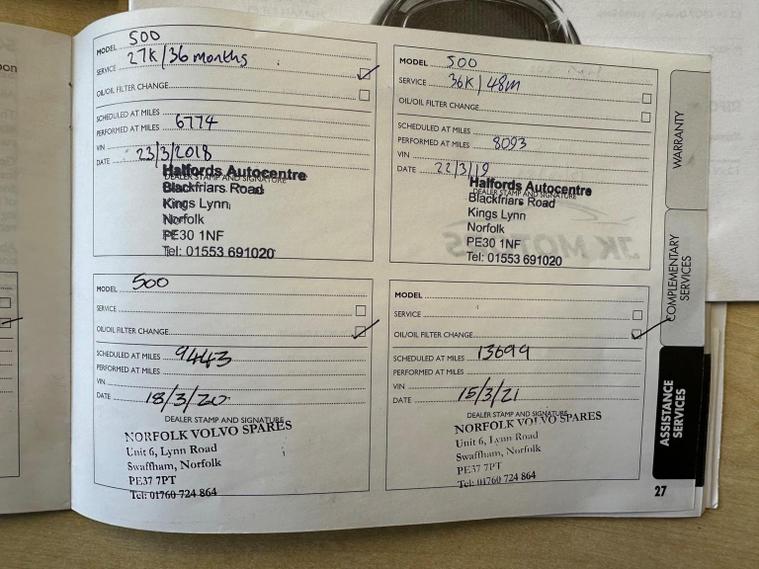 MODEL 500
SERVICE 27K/36 months
OIL/OIL FILTER CHANGE
SCHEDULED AT MILES
PERFORMED AT MILES 6774
VIN
DATE 23/3/2018
DEALER STAMP AND SIGNATURE
Halfords Autocentre
Blackfriars Road
Kings Lynn
Norfolk
PE30 1NF
Tel: 01553 691020
MODEL 500
SERVICE 36K/48m
OIL/OIL FILTER CHANGE
SCHEDULED AT MILES
PERFORMED AT MILES 8093
VIN
DATE 22/3/19
DEALER STAMP AND SIGNATURE
Halfords Autocentre
Blackfriars Road
Kings Lynn
Norfolk
PE30 1NF
Tel: 01553 691020
MODEL 500
SERVICE
OIL/OIL FILTER CHANGE
SCHEDULED AT MILES 9443
PERFORMED AT MILES
VIN
DATE 18/3/20
DEALER STAMP AND SIGNATURE
NORFOLK VOLVO SPARES
Unit 6, Lynn Road
Swaffham, Norfolk
PE37 7PT
Tel: 01760 724 864
MODEL
SERVICE
OIL/OIL FILTER CHANGE
SCHEDULED AT MILES 13699
PERFORMED AT MILES
VIN
DATE 15/3/21
DEALER STAMP AND SIGNATURE
NORFOLK VOLVO SPARES
Unit 6, Lynn Road
Swaffham, Norfolk
PE37 7PT
Tel: 01760 724 864
WARRANTY
COMPLEMENTARY
SERVICES
ASSISTANCE
SERVICES
27
JK MOTORS